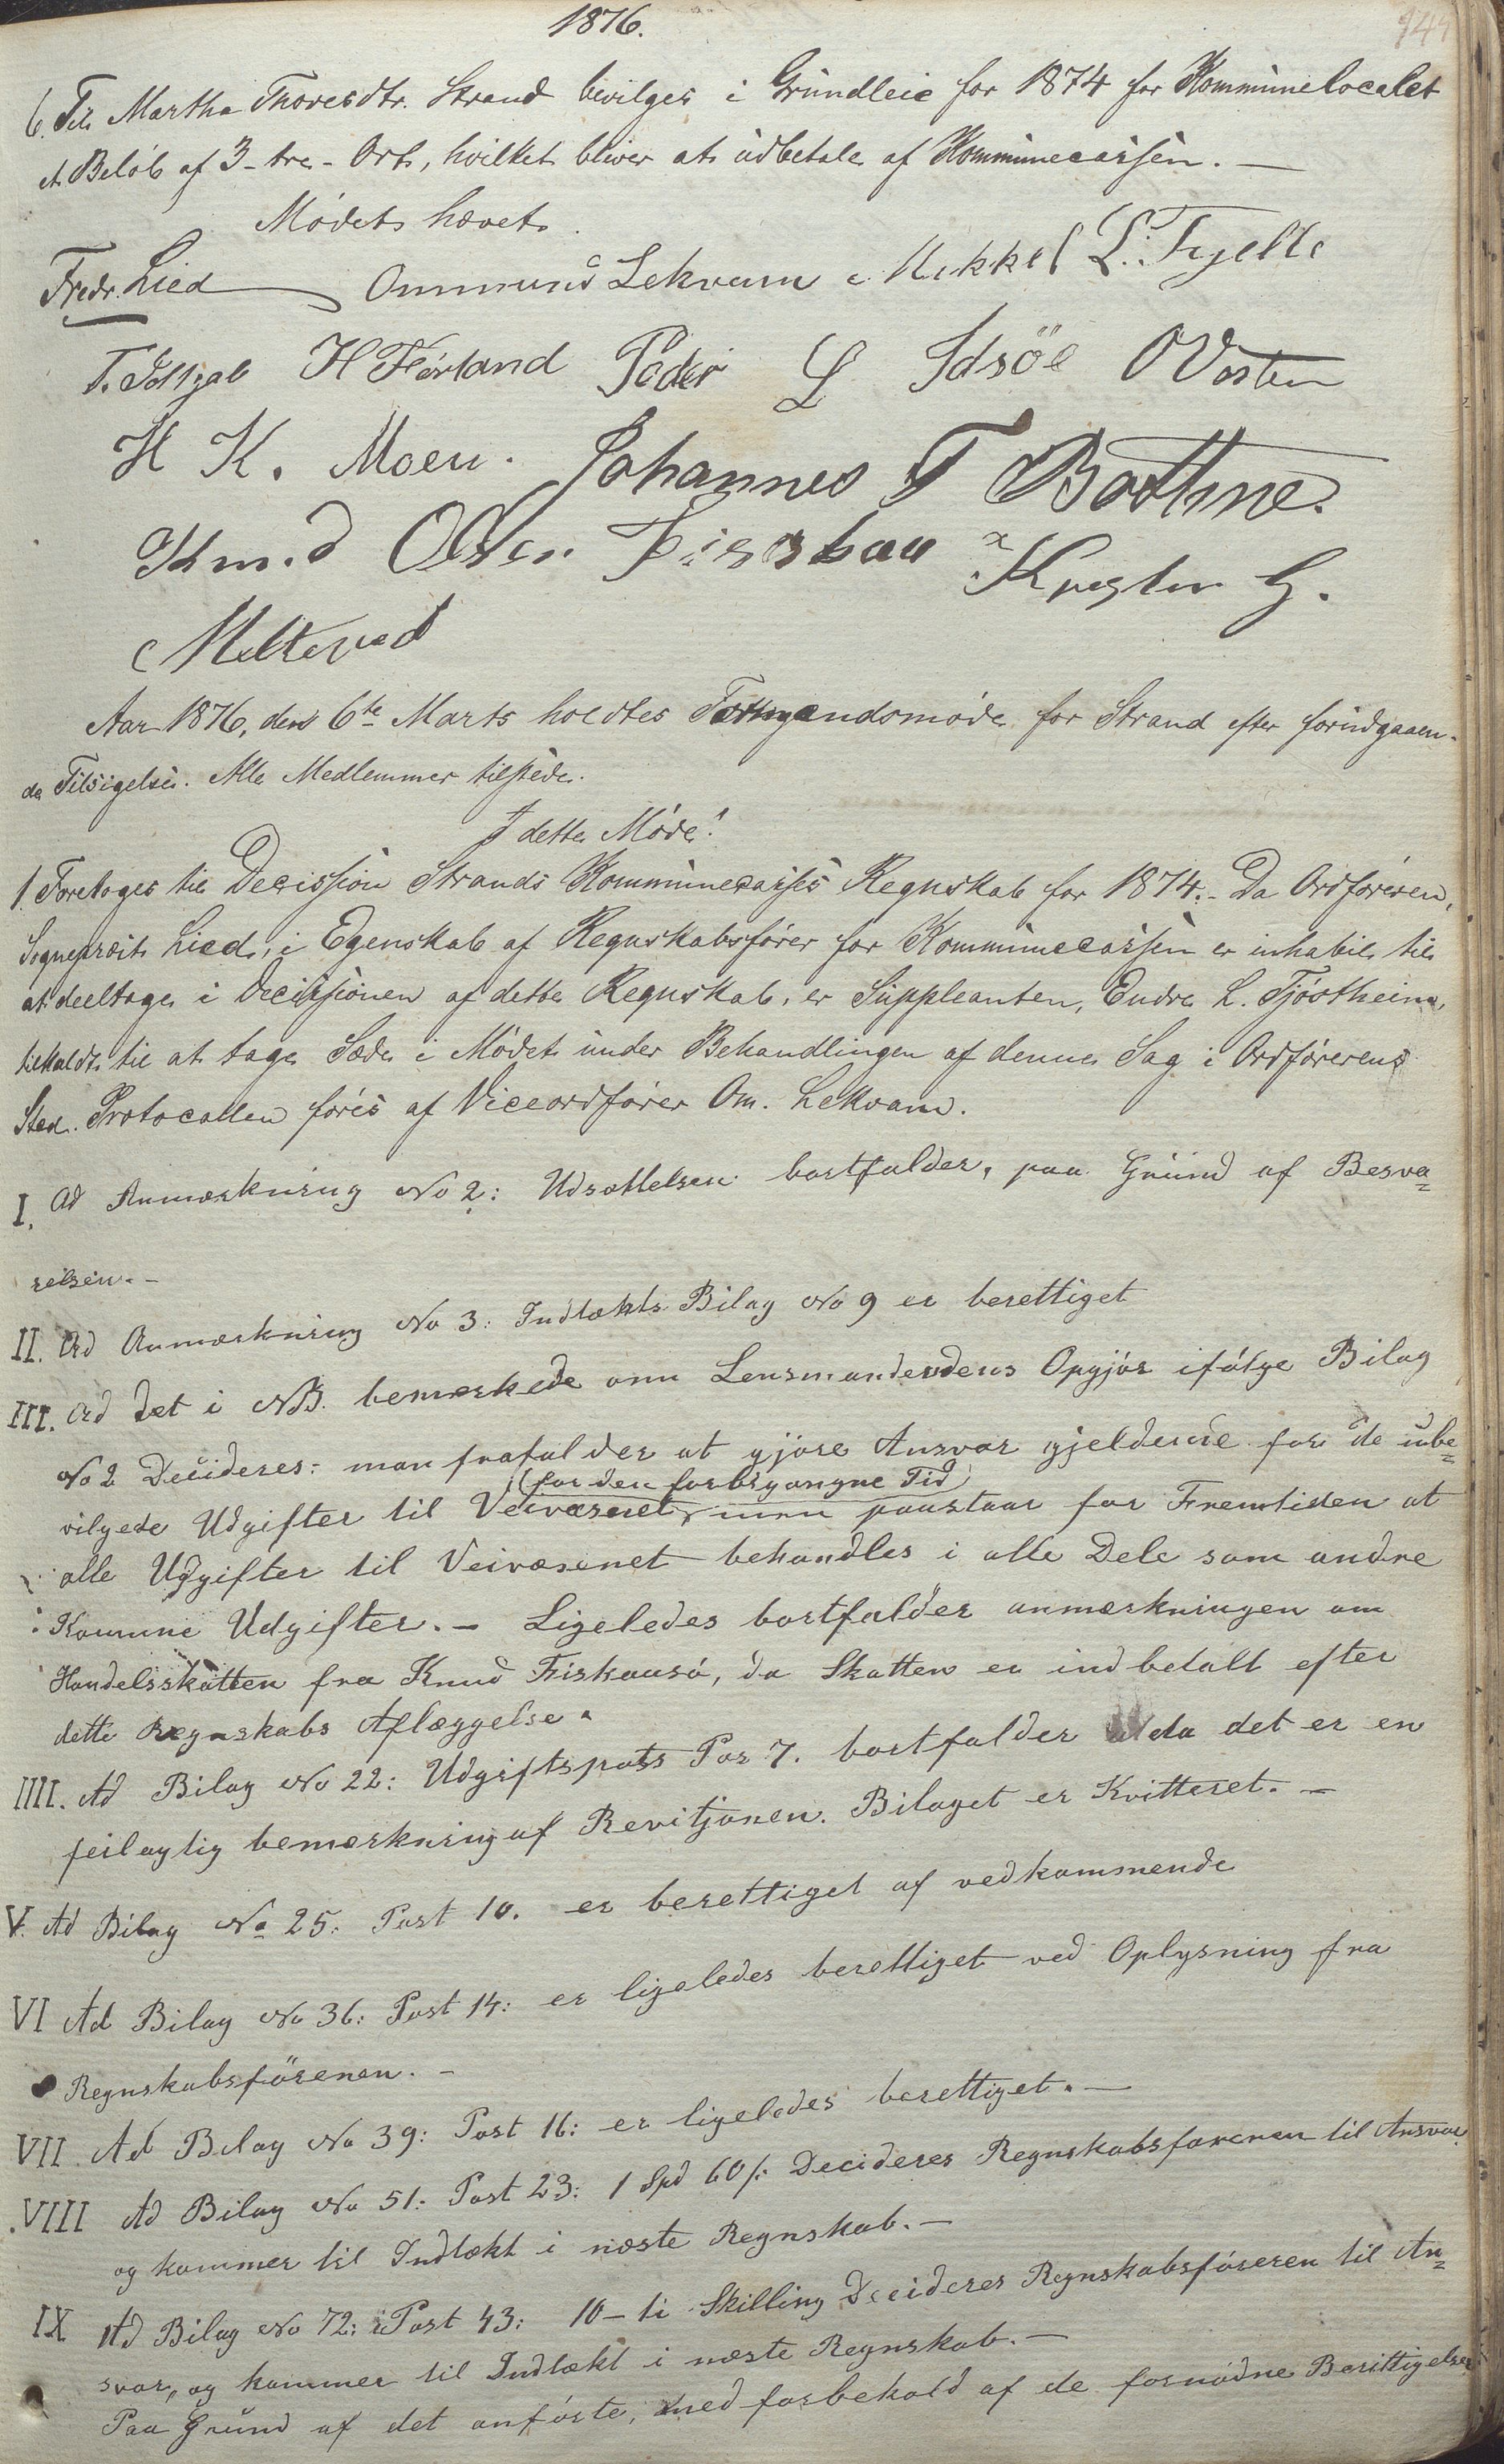 1876.
144
6. Til Martha Thoresdtr. Strand bevilges i Grundleie for 1874 for Kommunelocalet
et Beløb af 3 - tre - Ort, hvilket bliver at udbetale af Kommunecassen. —
Mødet hævet.
Fredr. Lied Ommund Lekvam Mikkel L. Fjelle
H Hørland Peder L Idsöe O Vosten
H K. Moen. Johannes T Bottne.
Knud Olsen
Aar 1876, den 6te Marts holdtes Formandsmøde for Strand efter forudgaaen-
de Tilsigelse. Alle Medlemmer tilstede.
I dette Møde:
1. Foretoges til Decission Strands Kommunecasses Regnskab for 1874. - Da Ordføreren,
Sognepræst Lied, i Egenskab af Regnskabsfører for Kommunecassen er inhabil til
at deeltage i Decissionen af dette Regnskab, er Suppleanten, Endre L. Tjøstheim,
tilkaldt til at tage Sæde i Mødet under Behandlingen af denne Sag i Ordførerens
Sted. Protocallen føres af Viceordfører Om. Lekvam.
I. Ad Anmærkning No 2: Udsættelsen bortfalder, paa Grund af Besva=
relsen. -
II. Ad Anmærkning No 3: Indtækts Bilag No 9 er berettiget
III. Ad det i NB. bemærkede om Lensmandendens Opgjør ifølge Bilag
No 2 Decideres: man frafalder at gjøre Ansvar gjeldende for de ube=
(for den forbigangne Tid)
vilgede Udgifter til Veivæsenet, men paastaar for Fremtiden at
alle Udgifter til Veivæsenet behandles i alle Dele som andre
Komune Udgifter. - Ligeledes bortfalder anmærkningen om
Handelsskatten fra Knud Fiskausø, da Skatten er indbetalt efter
dette Regnskabs Aflæggelse.
IIII. Ad Bilag No 22: Udgiftspost Pos 7. bortfalder da det er en
feilagtig bemærkning af Revitjonen. Bilaget er Kvitteret. -
V. Ad Bilag No 25: Post 10. er berettiget af vedkommende
VI Ad Bilag No 36: Post 14: er ligeledes berettiget ved Oplysning fra
Regnskabsføreren. -
VII Ad Bilag No 39: Post 16: er ligeledes berettiget. -
VIII Ad Bilag No 51: Post 23: 1 Spd 60 /: Decideres Regnskabsføreren til Ansvar
og kommer til Indtækt i næste Regnskab. -
IX Ad Bilag No 72: Post 43: 10 - ti Skilling Decideres Regnskabsføreren til An=
svar, og kommer til Indtækt i næste Regnskab. -
Paa Grund af det anførte, med forbehold af de fornødne Berittigelser